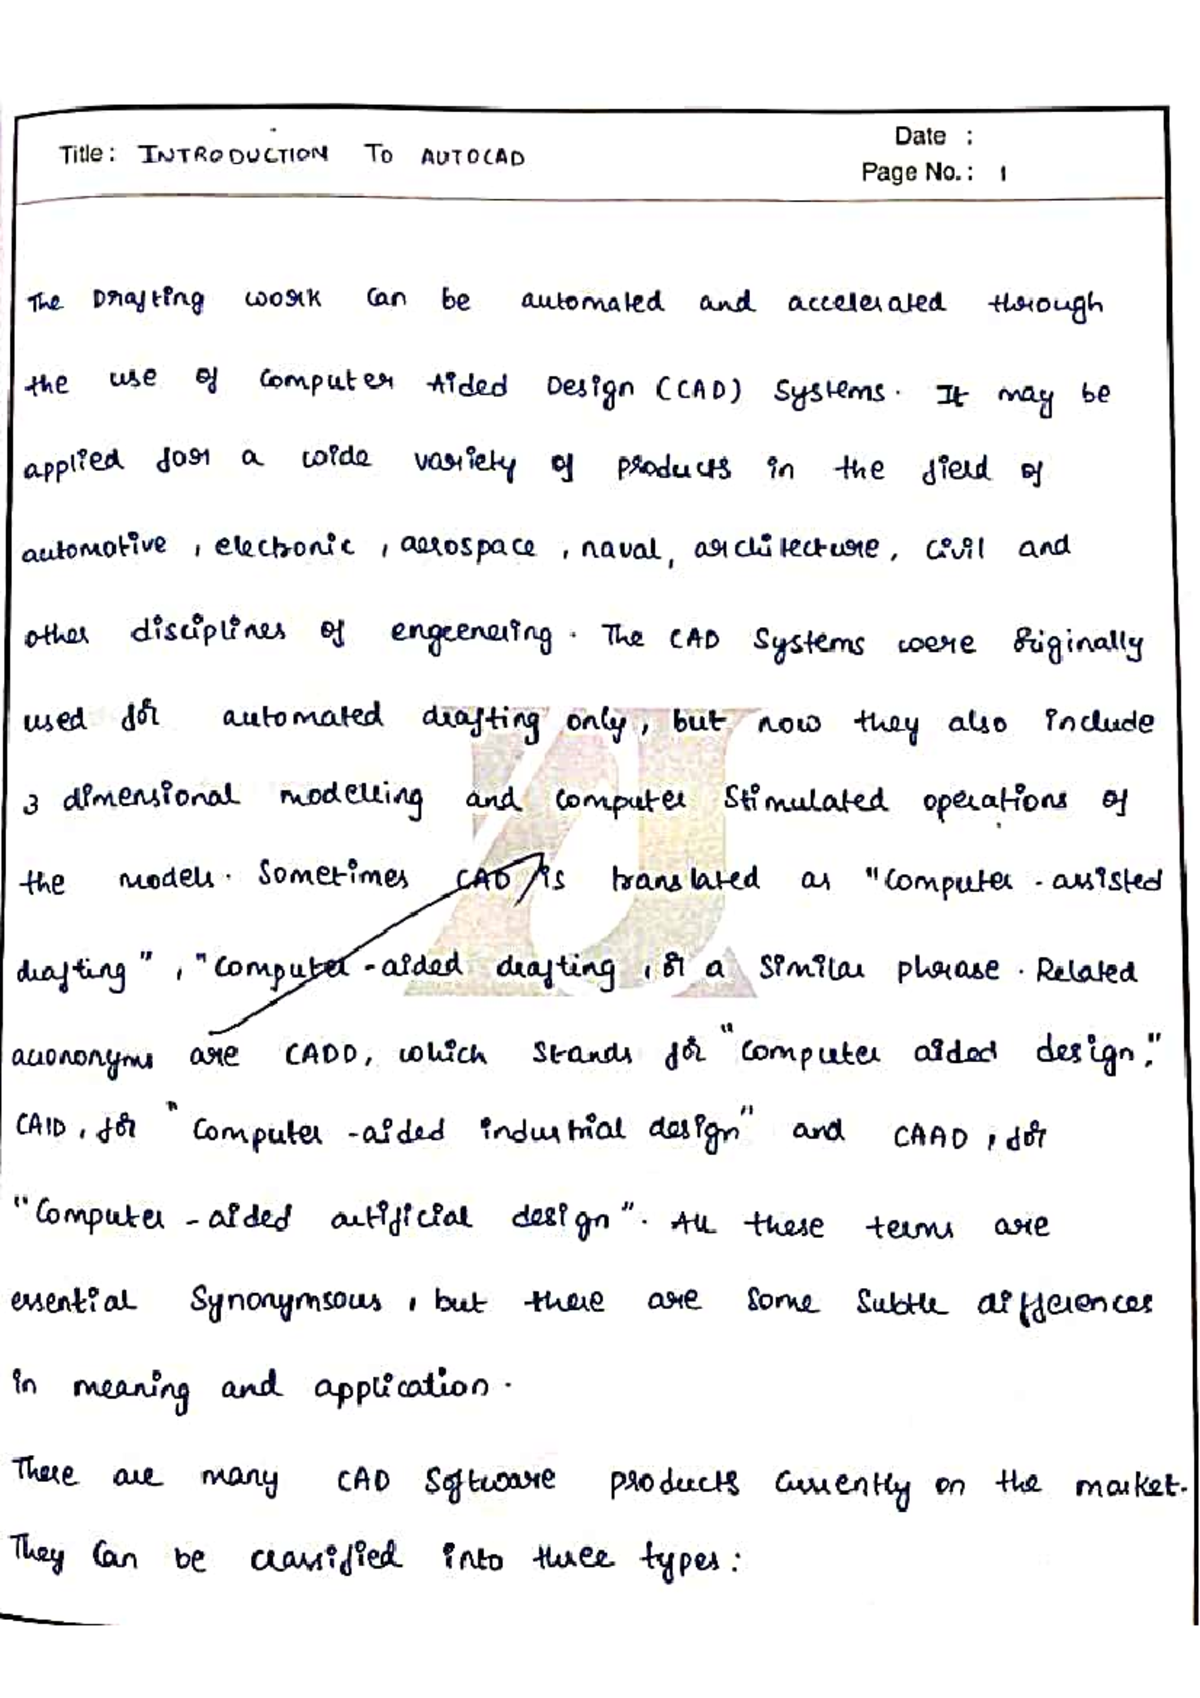 Title: INTRODUCTION TO AUTOCAD
Date :
Page No.: 1
The Drafting work can be automated and accelerated through
the use of Computer Aided Design (CAD) Systems. It may be
applied for a wide variety of products in the field of
automotive, electronic, aerospace, naval, architecture, civil and
other disciplines of engeenering. The CAD Systems were originally
used for automated drafting only, but now they also include
3 dimensional modelling and computer Stimulated operations of
the models. Sometimes CAD is translated as "Computer-assisted
drafting", "Computer-aided drafting, or a similar phrase. Related
acrononyms are CADD, which stands for "Computer aided design."
CAID, for "Computer-aided industrial design" and CAAD, for
"Computer-aided artificial design". All these terms are
essential Synonymsous, but there are some subtle differences
in meaning and application.
There are many CAD Software products currently on the market.
They can be classified into three types: